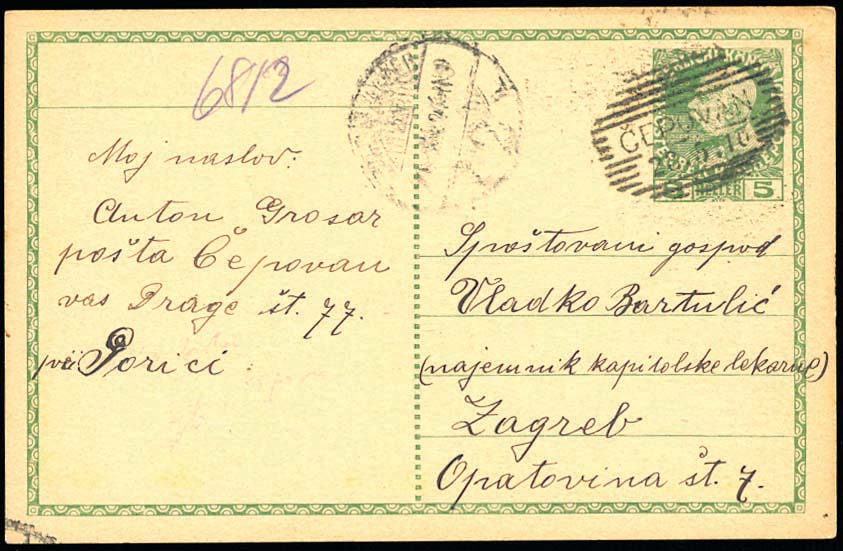 68/2
Moj naslov:
Anton Grosar
pošta Čepovan
vas Drage št. 77.
pri Gorici
ČEPOVAN
HELLER
5
Spoštovani gospod
Vladko Bartulić
(najemnik kapitolske lekarne)
Zagreb
Opatovina št. 7.